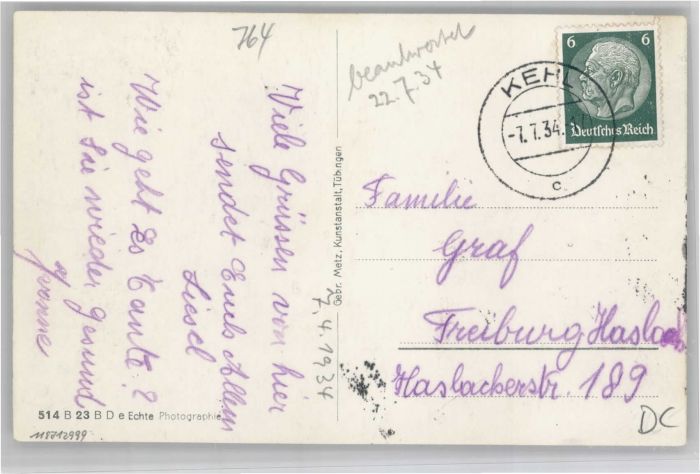 764
beantwortet
22.7.34
6 6
Deutsches Reich
KEHL
-7.7.34.
c
Viele Grüssen von hier
sendet Euch Allen
Liesel
Wie geht es Tante?
ist Sie wieder gesund
Yvonne
7.4.1934
Gebr. Metz, Kunstanstalt, Tübingen
Familie
Graf
Freiburg Haslach
Haslacherstr. 189
514 B 23 B D e Echte Photographie
118712999
DC